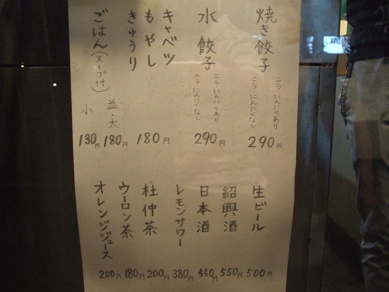 焼き餃子
ニラ・にんにくあり
ニラ・にんにくなし
290円
水餃子
ニラ・にんにくあり
ニラ・にんにくなし
290円
キャベツ
もやし
きゅうり
180円
ごはん(スープ付)
並・大
180円
小
130円
生ビール
500円
紹興酒
550円
日本酒
350円
レモンサワー
380円
杜仲茶
200円
ウーロン茶
180円
オレンジジュース
200円